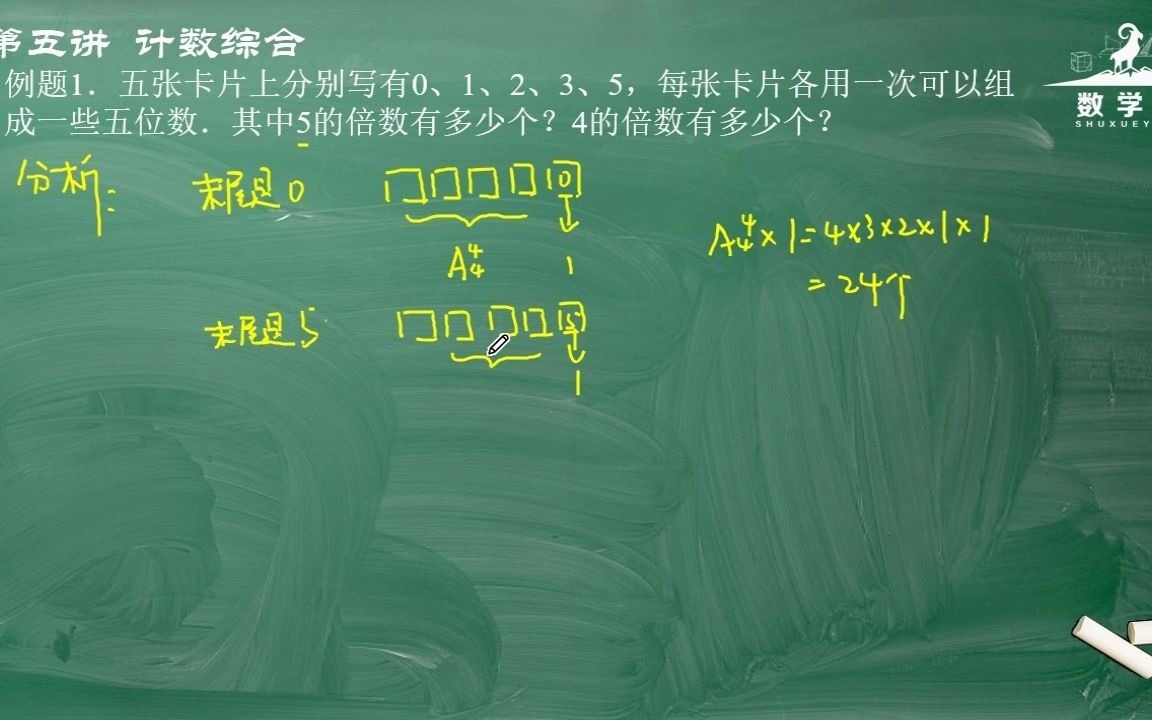 第五讲 计数综合
例题1．五张卡片上分别写有0、1、2、3、5，每张卡片各用一次可以组
成一些五位数．其中5的倍数有多少个？4的倍数有多少个？
数学
SHUXUEY
分析：
末尾是0
0
A₄⁴ 1
A₄⁴×1=4×3×2×1×1
=24个
末尾是5
5
1